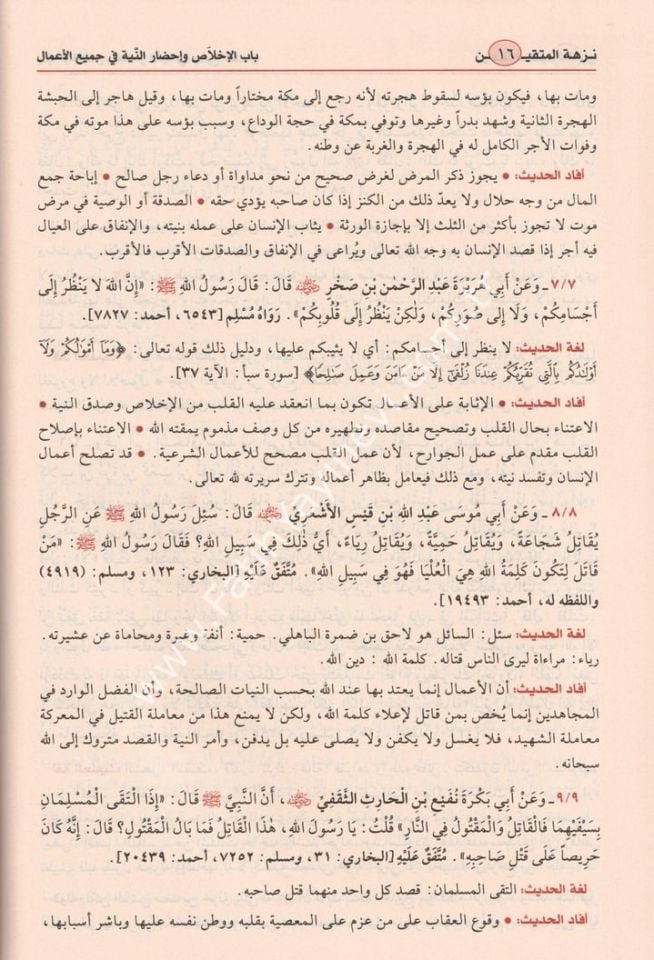 نزهة المتقيـــن ١٦ باب الإخلاص وإحضار النّية في جميع الأعمال
ومات بها، فيكون بؤسه لسقوط هجرته لأنه رجع إلى مكة مختاراً ومات بها، وقيل هاجر إلى الحبشة
الهجرة الثانية وشهد بدراً وغيرها وتوفي بمكة في حجة الوداع، وسبب بؤسه على هذا موته في مكة
وفوات الأجر الكامل له في الهجرة والغربة عن وطنه.
أفاد الحديث: • يجوز ذكر المرض لغرض صحيح من نحو مداواة أو دعاء رجل صالح • إباحة جمع
المال من وجه حلال ولا يعدّ ذلك من الكنز إذا كان صاحبه يؤدي حقه • الصدقة أو الوصية في مرض
موت لا تجوز بأكثر من الثلث إلا بإجازة الورثة • يثاب الإنسان على عمله بنيته، والإنفاق على العيال
فيه أجر إذا قصد الإنسان به وجه الله تعالى ويُراعى في الإنفاق والصدقات الأقرب فالأقرب.
٧/٧ ـ وَعَنْ أَبِي هُرَيْرَةَ عَبْدِ الرَّحْمٰنِ بْنِ صَخْرٍ رضي الله عنه قَالَ: قَالَ رَسُولُ اللهِ ﷺ: «إِنَّ اللهَ لَا يَنْظُرُ إِلَى
أَجْسَامِكُمْ، وَلَا إِلَى صُوَرِكُمْ، وَلَكِنْ يَنْظُرُ إِلَى قُلُوبِكُمْ». رَوَاهُ مُسْلِم [٦٥٤٣، أحمد: ٧٨٢٧].
لغة الحديث: لا ينظر إلى أجسامكم: أي لا يثيبكم عليها، ودليل ذلك قوله تعالى: ﴿وَمَآ أَمْوَٰلُكُمْ وَلَآ
أَوْلَٰدُكُم بِٱلَّتِى تُقَرِّبُكُمْ عِندَنَا زُلْفَىٰٓ إِلَّا مَنْ ءَامَنَ وَعَمِلَ صَٰلِحًا﴾ [سورة سبأ: الآية ٣٧].
أفاد الحديث: • الإثابة على الأعمال تكون بما انعقد عليه القلب من الإخلاص وصدق النية •
الاعتناء بحال القلب وتصحيح مقاصده وتطهيره من كل وصف مذموم يمقته الله • الاعتناء بإصلاح
القلب مقدم على عمل الجوارح، لأن عمل القلب مصحح للأعمال الشرعية. • قد تصلح أعمال
الإنسان وتفسد نيته، ومع ذلك فيعامل بظاهر أعماله وتترك سريرته لله تعالى.
٨/٨ ـ وَعَنْ أَبِي مُوسَى عَبْدِ اللهِ بْنِ قَيْسٍ الأَشْعَرِيِّ رضي الله عنه قَالَ: سُئِلَ رَسُولُ اللهِ ﷺ عَنِ الرَّجُلِ
يُقَاتِلُ شَجَاعَةً، وَيُقَاتِلُ حَمِيَّةً، وَيُقَاتِلُ رِيَاءً، أَيُّ ذٰلِكَ فِي سَبِيلِ اللهِ؟ فَقَالَ رَسُولُ اللهِ ﷺ: «مَنْ
قَاتَلَ لِتَكُونَ كَلِمَةُ اللهِ هِيَ الْعُلْيَا فَهُوَ فِي سَبِيلِ اللهِ». مُتَّفَقٌ عَلَيْهِ [البخاري: ١٢٣، ومسلم: (٤٩١٩)
واللفظه له، أحمد: ١٩٤٩٣].
لغة الحديث: سئل: السائل هو لاحق بن ضمرة الباهلي. حمية: أنفة وغيرة ومحاماة عن عشيرته.
رياء: مراءاة ليرى الناس قتاله. كلمة الله : دين الله.
أفاد الحديث: أن الأعمال إنما يعتد بها عند الله بحسب النيات الصالحة، وأن الفضل الوارد في
المجاهدين إنما يُخص بمن قاتل لإعلاء كلمة الله، ولكن لا يمنع هذا من معاملة القتيل في المعركة
معاملة الشهيد، فلا يغسل ولا يكفن ولا يصلى عليه بل يدفن، وأمر النية والقصد متروك إلى الله
سبحانه.
٩/٩ ـ وَعَنْ أَبِي بَكْرَةَ نُفَيْعِ بْنِ الْحَارِثِ الثَّقَفِيِّ رضي الله عنه، أَنَّ النَّبِيَّ ﷺ قَالَ: «إِذَا الْتَقَى الْمُسْلِمَانِ
بِسَيْفَيْهِمَا فَالْقَاتِلُ وَالْمَقْتُولُ فِي النَّارِ» قُلْتُ: يَا رَسُولَ اللهِ، هٰذَا الْقَاتِلُ فَمَا بَالُ الْمَقْتُولِ؟ قَالَ: إِنَّهُ كَانَ
حَرِيصاً عَلَى قَتْلِ صَاحِبِهِ». مُتَّفَقٌ عَلَيْهِ [البخاري: ٣١، ومسلم: ٧٢٥٢، أحمد: ٢٠٤٣٩].
لغة الحديث: التقى المسلمان: قصد كل واحد منهما قتل صاحبه.
أفاد الحديث: • وقوع العقاب على من عزم على المعصية بقلبه ووطن نفسه عليها وباشر أسبابها،